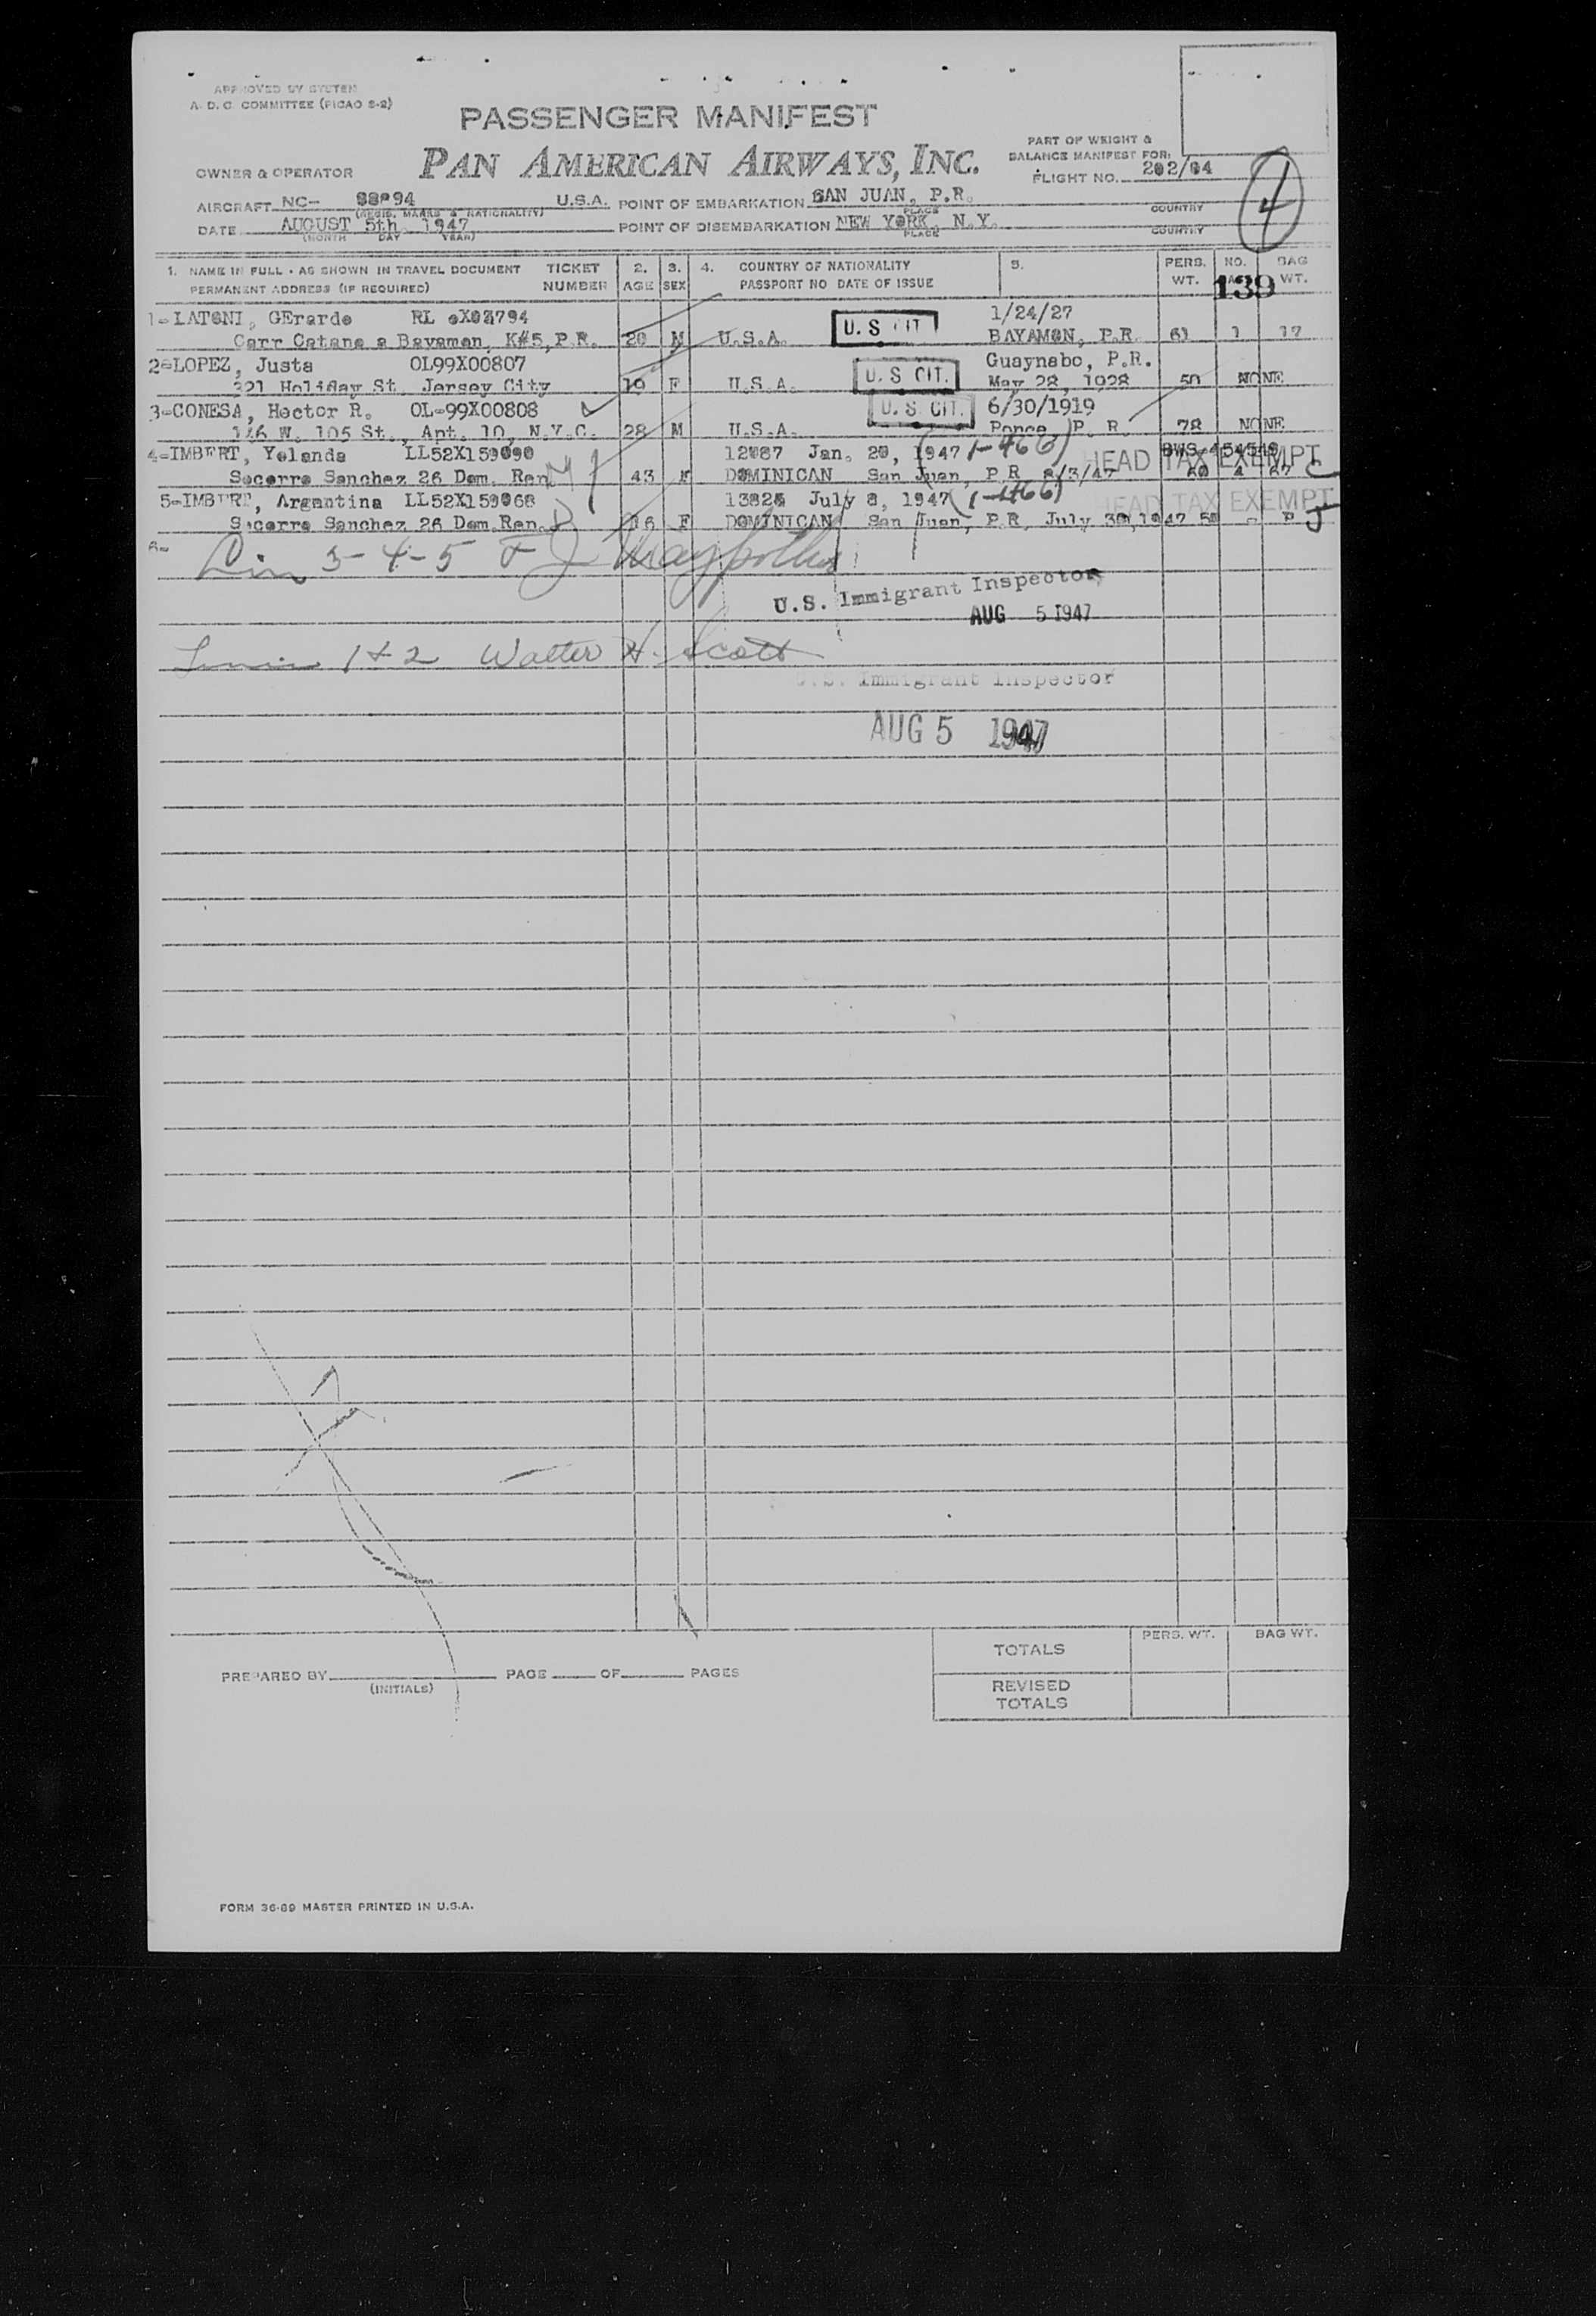 APPROVED BY SYSTEM
A. D. C. COMMITTEE (PICAO S-2)
PASSENGER MANIFEST
PAN AMERICAN AIRWAYS, INC.
PART OF WEIGHT &
BALANCE MANIFEST FOR:
OWNER & OPERATOR
FLIGHT NO. 202/04
4
AIRCRAFT NC- U.S.A. POINT OF EMBARKATION SAN JUAN, P.R.
(REGIS. MARKS & NATIONALITY) PLACE COUNTRY
DATE AUGUST 5th, 1947 POINT OF DISEMBARKATION NEW YORK, N.Y.
(MONTH DAY YEAR) PLACE COUNTRY
1. NAME IN FULL - AS SHOWN IN TRAVEL DOCUMENT TICKET 2. 3. 4. COUNTRY OF NATIONALITY 5. PERS. NO. BAG
PERMANENT ADDRESS (IF REQUIRED) NUMBER AGE SEX PASSPORT NO DATE OF ISSUE WT. WT.
139
1- LATONI, GErardo RL 1/24/27
Carr Catano a Bayamon, K#5, P.R. 20 M U.S.A. U. S CIT BAYAMON, P.R. 61 1 17
2-LOPEZ, Justa OL99X00807 Guaynabo, P.R.
321 Holiday St. Jersey City 19 F U.S.A. U. S CIT. May 28, 1928 50 NONE
3-CONESA, Hector R. OL-99X00808 U. S. CIT. 6/30/1919
W. 105 St., Apt. 10, N.Y.C. 28 M U.S.A. Ponce, P. R. 78 NONE
4-IMBERT, Yolanda LL52X159090 12087 Jan. 20, 1947 (1-466)
HEAD TAX EXEMPT
Socorro Sanchez 26 Dom. Rep 43 F DOMINICAN San Juan, P.R. 8/3/47 60 4 67 C
5-IMBERT, Argentina LL52X159068 July 8, 1947 (1-466)
HEAD TAX EXEMPT
Socorro Sanchez 26 Dom.Rep. 16 F DOMINICAN San Juan, P.R. July 30,1947 50 - P J
6-
Lin 3-4-5
U.S. Immigrant Inspector
AUG 5 1947
1 & 2 Walter H. Scott
U.S. Immigrant Inspector
AUG 5 1947
PERS. WT. BAG WT.
TOTALS
PREPARED BY PAGE OF PAGES
(INITIALS)
REVISED
TOTALS
FORM 36-89 MASTER PRINTED IN U.S.A.